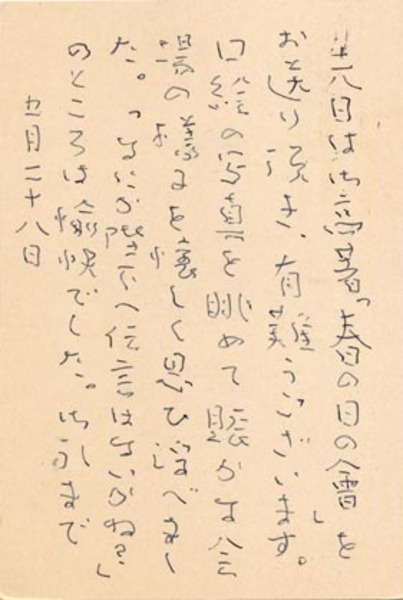 先日は御高著「春の日の會」を
お送り頂き、有難うございます。
口絵の写真を眺めて賑かな会
場の様子を懐しく思ひ浮べまし
た。「なにか陛下へ伝言はないかね?」
のところは愉快でした。御礼まで
五月二十八日